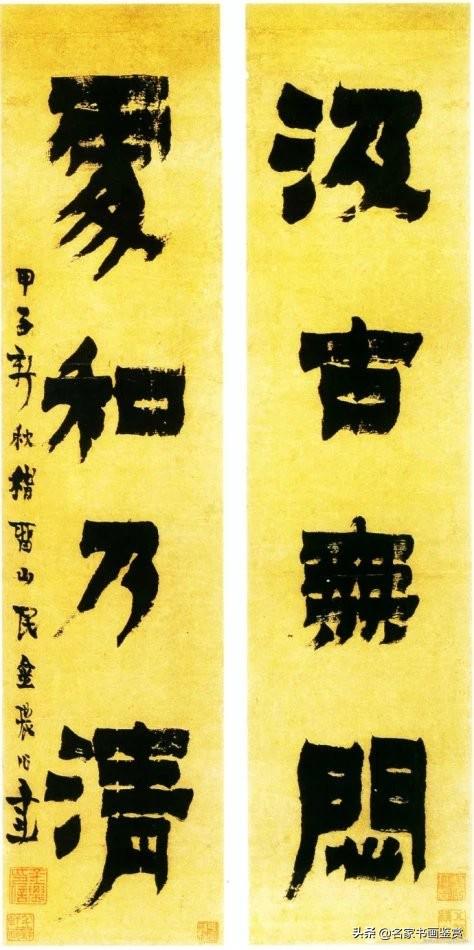 汲古無悶
處和乃清
甲子新秋稽留山民金農作書
头条 @名家书画鉴赏